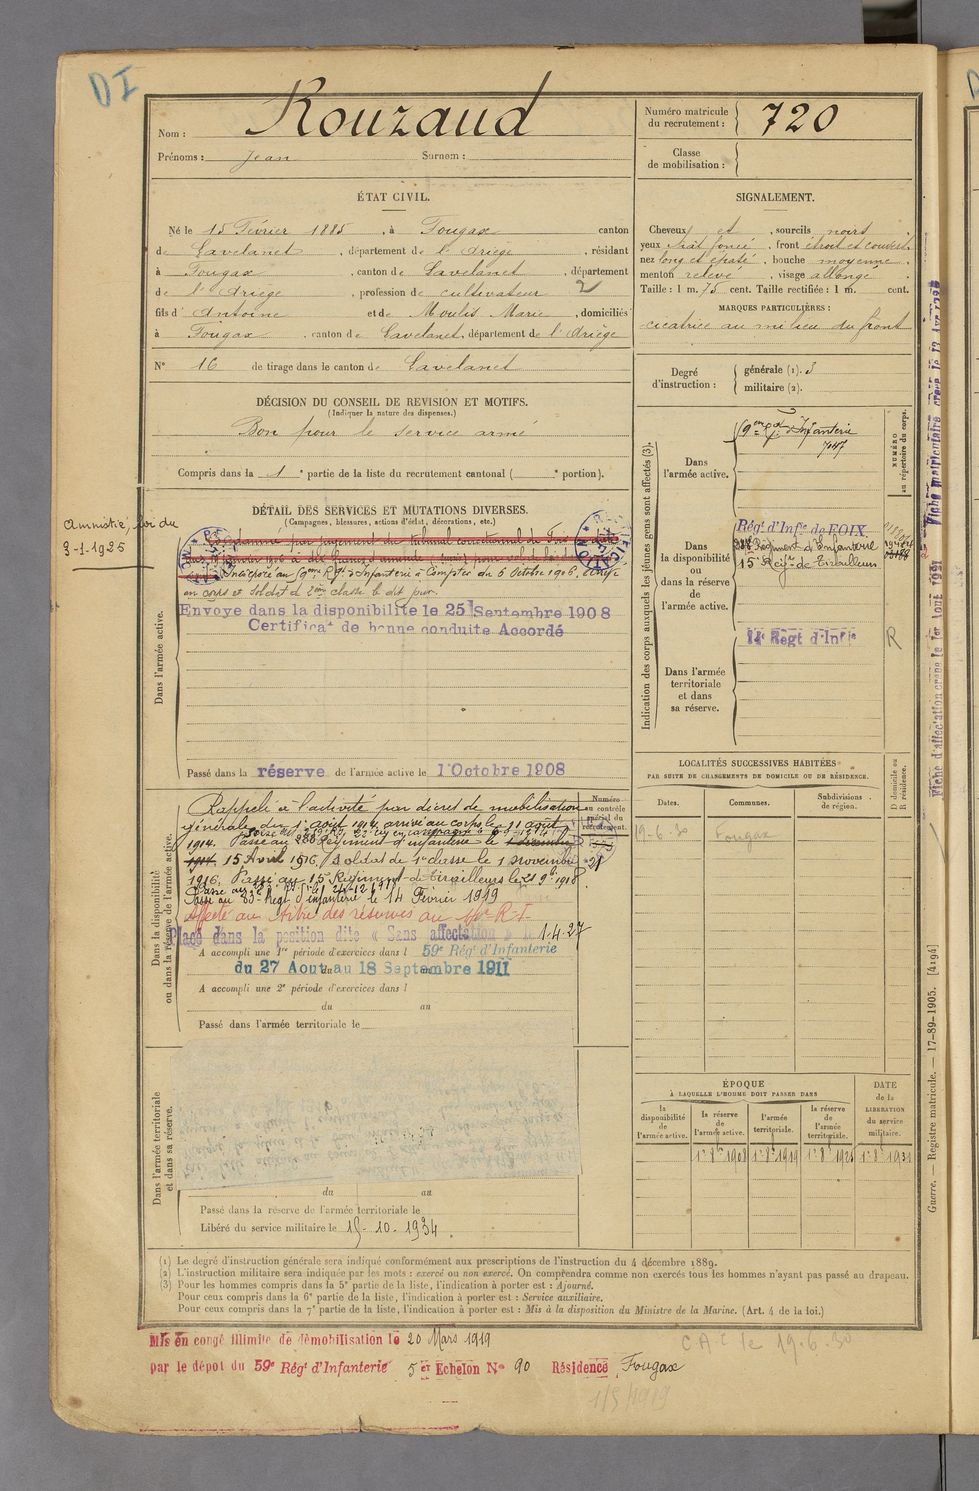 DI
Nom : Rouzaud
Prénoms : Jean Surnom :
Numéro matricule du recrutement : 720
Classe de mobilisation :
ÉTAT CIVIL.
Né le 15 Février 1885, à Fougax canton
de Lavelanet, département de l'Ariège, résidant
à Fougax, canton de Lavelanet, département
de l'Ariège, profession de cultivateur 2
fils d'Antoine et de Moulis Marie, domiciliés
à Fougax, canton de Lavelanet, département de l'Ariège
N° 16 de tirage dans le canton de Lavelanet
SIGNALEMENT.
Cheveux et, sourcils noirs
yeux chât foncé, front étroit et couvert,
nez long et épaté, bouche moyenne,
menton relevé, visage allongé.
Taille : 1 m. 75 cent. Taille rectifiée : 1 m. cent.
MARQUES PARTICULIÈRES :
cicatrice au milieu du front
Degré d'instruction : générale (1). 3
militaire (2).
DÉCISION DU CONSEIL DE REVISION ET MOTIFS.
(Indiquer la nature des dispenses.)
Bon pour le service armé
Compris dans la 1e partie de la liste du recrutement cantonal ( e portion).
DÉTAIL DES SERVICES ET MUTATIONS DIVERSES.
(Campagnes, blessures, actions d'éclat, décorations, etc.)
Amnistié, loi du
3-1-1925
Condamné par jugement du tribunal correctionnel de Foix
Incorporé au 59ème Rgt d'Infanterie à Compter du 6 Octobre 1906,
au corps et Soldat de 2ème classe le dit jour.
Envoyé dans la disponibilité le 25 Septembre 1908
Certificat de bonne conduite Accordé
Dans l'armée active.
Passé dans la réserve de l'armée active le 1 Octobre 1908
Indication des corps auxquels les jeunes gens sont affectés (3).
Dans l'armée active.
59ème Rgt d'Infanterie
NUMÉRO au répertoire du corps.
Dans la disponibilité ou dans la réserve de l'armée active.
Régt d'Infie de FOIX
Régiment d'Infanterie
15 Regt de Tirailleurs
Dans l'armée territoriale et dans sa réserve.
Régt d'Infie
R
LOCALITÉS SUCCESSIVES HABITÉES
PAR SUITE DE CHANGEMENTS DE DOMICILE OU DE RÉSIDENCE.
D domicile ou R résidence.
Dates. Communes. Subdivisions de région.
19-6-30 Fougax
Dans la disponibilité ou dans la réserve de l'armée active.
Numéro au contrôle spécial du recrutement.
Rappelé à l'activité par décret de mobilisation
générale du 1er août 1914, arrivé au corps le 11 août
1914. Passé au Régiment d'infanterie le
15 Avril 1916, Soldat de 1e classe le 1 novembre
1916. Passé au 15 Régiment de Tirailleurs le 21 9bre 1918
Passé au 83e Régt d'infanterie le 14 Février 1919
Affecté au titre des réserves au
Placé dans la position dite « Sans affectation » le 1-4-27
A accompli une 1re période d'exercices dans l 59e Régt d'Infanterie
du 27 Aout au 18 Septembre 1911
A accompli une 2e période d'exercices dans l
du au
Passé dans l'armée territoriale le
Dans l'armée territoriale et dans sa réserve.
du au
Passé dans la réserve de l'armée territoriale le
Libéré du service militaire le 15-10-1934
ÉPOQUE
À LAQUELLE L'HOMME DOIT PASSER DANS
la disponibilité de l'armée active.
la réserve de l'armée active.
l'armée territoriale.
la réserve de l'armée territoriale.
DATE de la LIBÉRATION du service militaire.
1er 8bre 1908
1er 8bre 1919
(1) Le degré d'instruction générale sera indiqué conformément aux prescriptions de l'instruction du 4 décembre 1889.
(2) L'instruction militaire sera indiquée par les mots : exercé ou non exercé. On comprendra comme non exercés tous les hommes n'ayant pas passé au drapeau.
(3) Pour les hommes compris dans la 5e partie de la liste, l'indication à porter est : Ajourné.
Pour ceux compris dans la 6e partie de la liste, l'indication à porter est : Service auxiliaire.
Pour ceux compris dans la 7e partie de la liste, l'indication à porter est : Mis à la disposition du Ministre de la Marine. (Art. 4 de la loi.)
Guerre. — Registre matricule. — 17-89-1905. [4194]
Mis en congé illimité de démobilisation le 20 Mars 1919
par le dépôt du 59e Régt d'Infanterie 5e Echelon N° 90 Résidence Fougax
C A C le 19.6.30